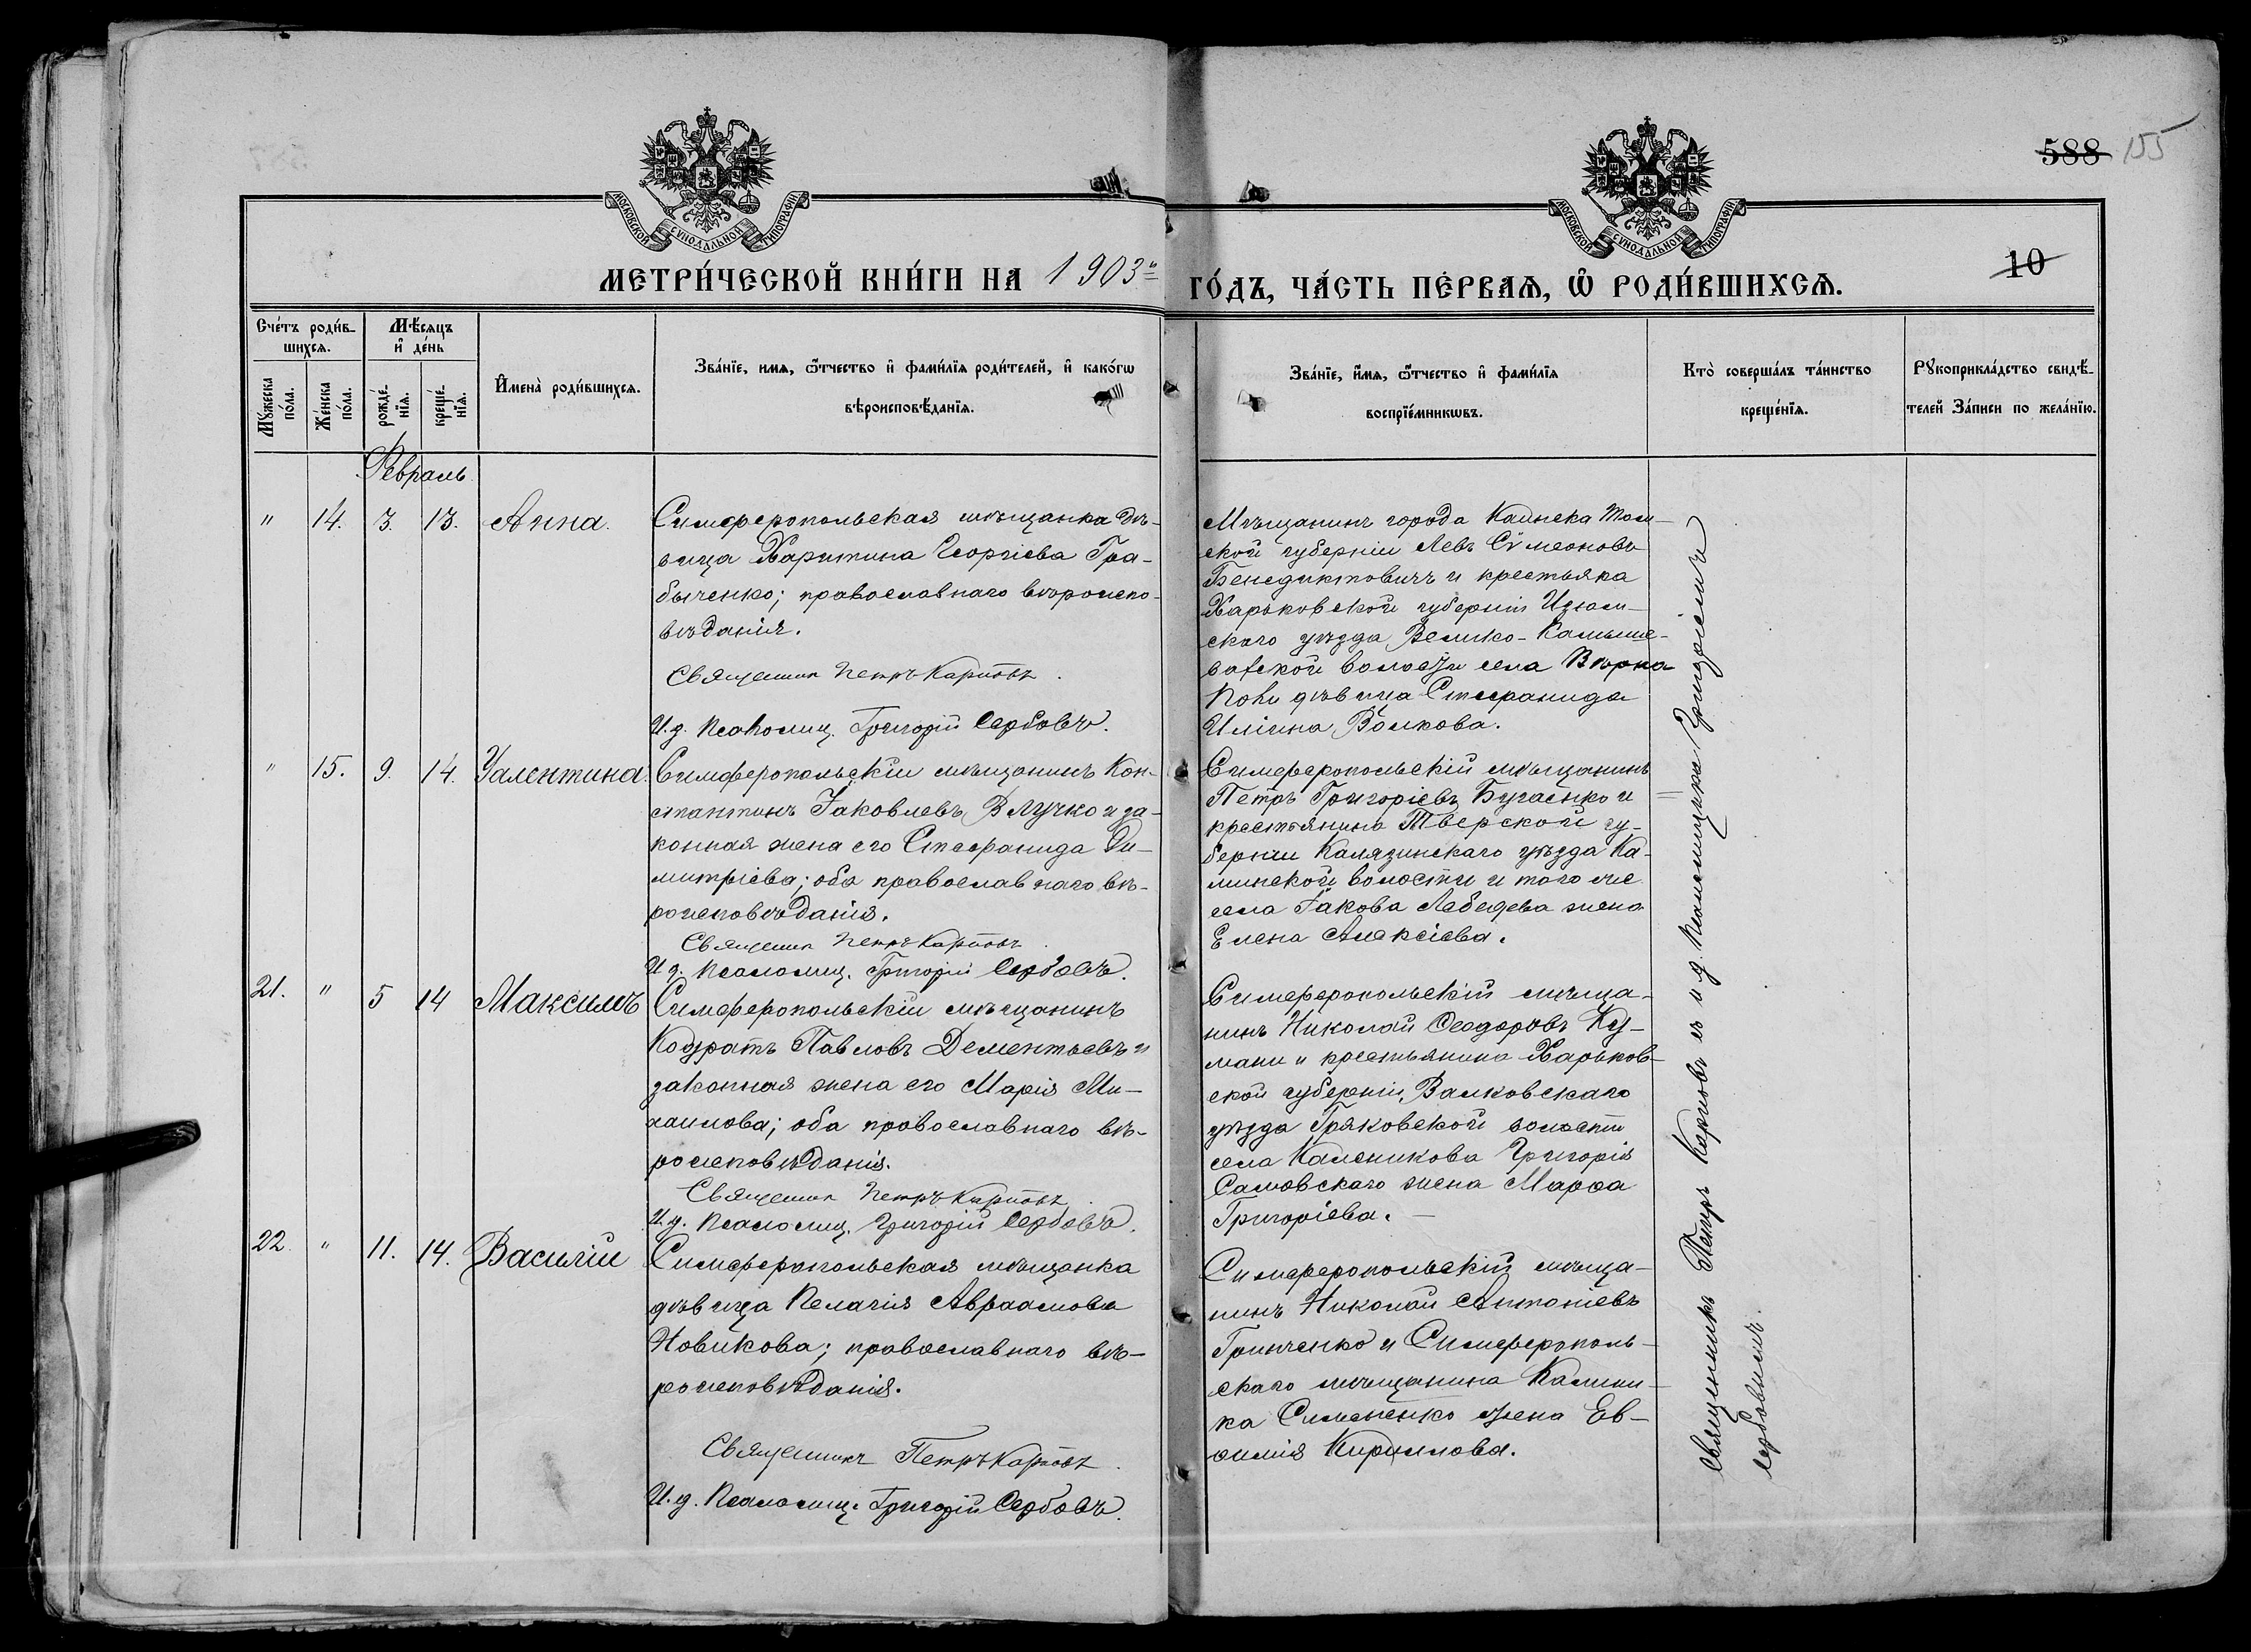 588 155
10
МОСКОВСКОЙ СѴНОДАЛЬНОЙ ТИПОГРАФІИ
МОСКОВСКОЙ СѴНОДАЛЬНОЙ ТИПОГРАФІИ
МЕТРИ́ЧЕСКОЙ КНИ́ГИ НА 1903й ГО́ДЪ, ЧА́СТЬ ПЕ́РВАѦ, Ѽ РОДИ́ВШИХСѦ.
Сче́тъ роди́в-
шихсѧ.
Мꙋ́жеска
по́ла.
Же́нска
по́ла.
Мѣ́сѧцъ
и҆ де́нь
рожде́-
нїѧ.
креще́-
нїѧ.
И҆мена̀ роди́вшихсѧ.
Зва́нїе, имѧ, ѿтчество и҆ фами́лїѧ роди́телей, и҆ како́гѡ
вѣроисповѣ́данїѧ.
Зва́нїе, и҆мѧ, ѿтчество и҆ фами́лїѧ
воспрїе́мникѡвъ.
Кто̀ соверша́лъ та́инство
креще́нїѧ.
Рꙋкоприкла́дство свидѣ́-
телей За́писи по жела́нїю.
Февраль
" 14. 3. 13. Анна.
Симферопольская мѣщанка дѣ-
вица Харитина Георгіева Гра-
быченко; православнаго вѣроиспо-
вѣданія.
Священник Петръ Карповъ.
И.д. Псаломщ. Григорій Сербовъ.
Мѣщанинъ города Каинска Том-
ской губерніи Левъ Сѵмеоновъ
Бенедиктовичъ и крестьянка
Харьковской губерніи Изюм-
скаго уѣзда Велико-Камыше-
ватской волости села
дѣвица Стефанида
Иліина Волкова.
" 15. 9. 14. Валентина.
Симферопольскій мѣщанинъ Кон-
стантинъ Іаковлевъ Влучко и за-
конная жена его Стефанида Ди-
митріева; оба православнаго вѣ-
роисповѣданія.
Священник Петръ Карповъ.
И.д. Псаломщ. Григорій Сербовъ.
Симферопольскій мѣщанинъ
Петръ Григоріевъ Бугаенко и
крестьянина Тверской гу-
берніи Калязинскаго уѣзда Ка-
минской волости и того же
села Іакова Лебедева жена
Елена Алексіева.
21. " 5 14 Максимъ
Симферопольскій мѣщанинъ
Кодратъ Павловъ Дементьевъ и
законная жена его Марія Ми-
хаилова; оба православнаго вѣ-
роисповѣданія.
Священник Петръ Карповъ.
И.д. Псаломщ. Григорій Сербовъ.
Симферопольскій мѣща-
нинъ Николай Ѳеодоровъ Ку-
мани и крестьянина Харьков-
ской губерніи, Валковскаго
уѣзда Гряковской волости
села Каленикова Григорія
Самовскаго жена Марѳа
Григоріева. —
22. " 11. 14. Василій
Симферопольская мѣщанка
дѣвица Пелагія Авраамова
Новикова; православнаго вѣ-
роисповѣданія.
Священникъ Петръ Карповъ.
И.д. Псаломщ. Григорій Сербовъ.
Симферопольскій мѣща-
нинъ Николай Антоніевъ
Гринченко и Симферополь-
скаго мѣщанина Калини-
ка Сименѣнко жена Ев-
ѳимія Кириллова.
Священникъ Петръ Карповъ съ и.д. Псаломщика Григоріемъ
Сербовымъ.